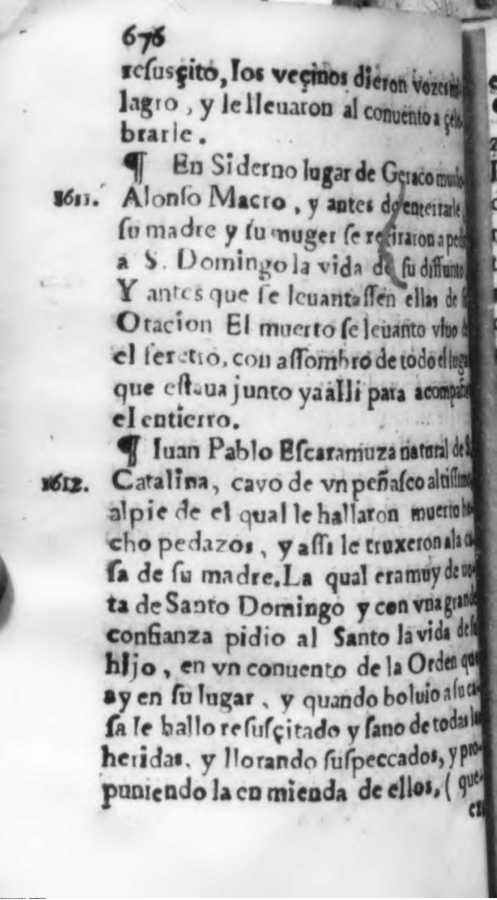 676
resusçito, los veçinos dieron vozes
lagro, y le lleuaron al conuento a çele
brarle.
¶ En Siderno lugar de Geraco murio
1611. Alonso Macro, y antes de enterrarle,
su madre y su muger se retiraron a pedir
a S. Domingo la vida de su diffunto
Y antes que se leuantassen ellas de su
Oracion El muerto se leuanto viuo de
el feretro, con assombro de todo el lugar
que estaua junto ya alli para acompañar
el entierro.
¶ Iuan Pablo Escaramuza natural de S.
1612. Catalina, cayo de vn peñasco altissimo
al pie de el qual le hallaron muerto he
cho pedazos, y assi le truxeron a la ca
sa de su madre. La qual era muy de uo
ta de Santo Domingo y con vna grande
confianza pidio al Santo la vida de su
hijo, en vn conuento de la Orden que
ay en su lugar, y quando boluio a su ca-
sa le hallo resusçitado y sano de todas las
heridas, y llorando suspeccados, y pro-
puniendo la en mienda de ellos, ( que-